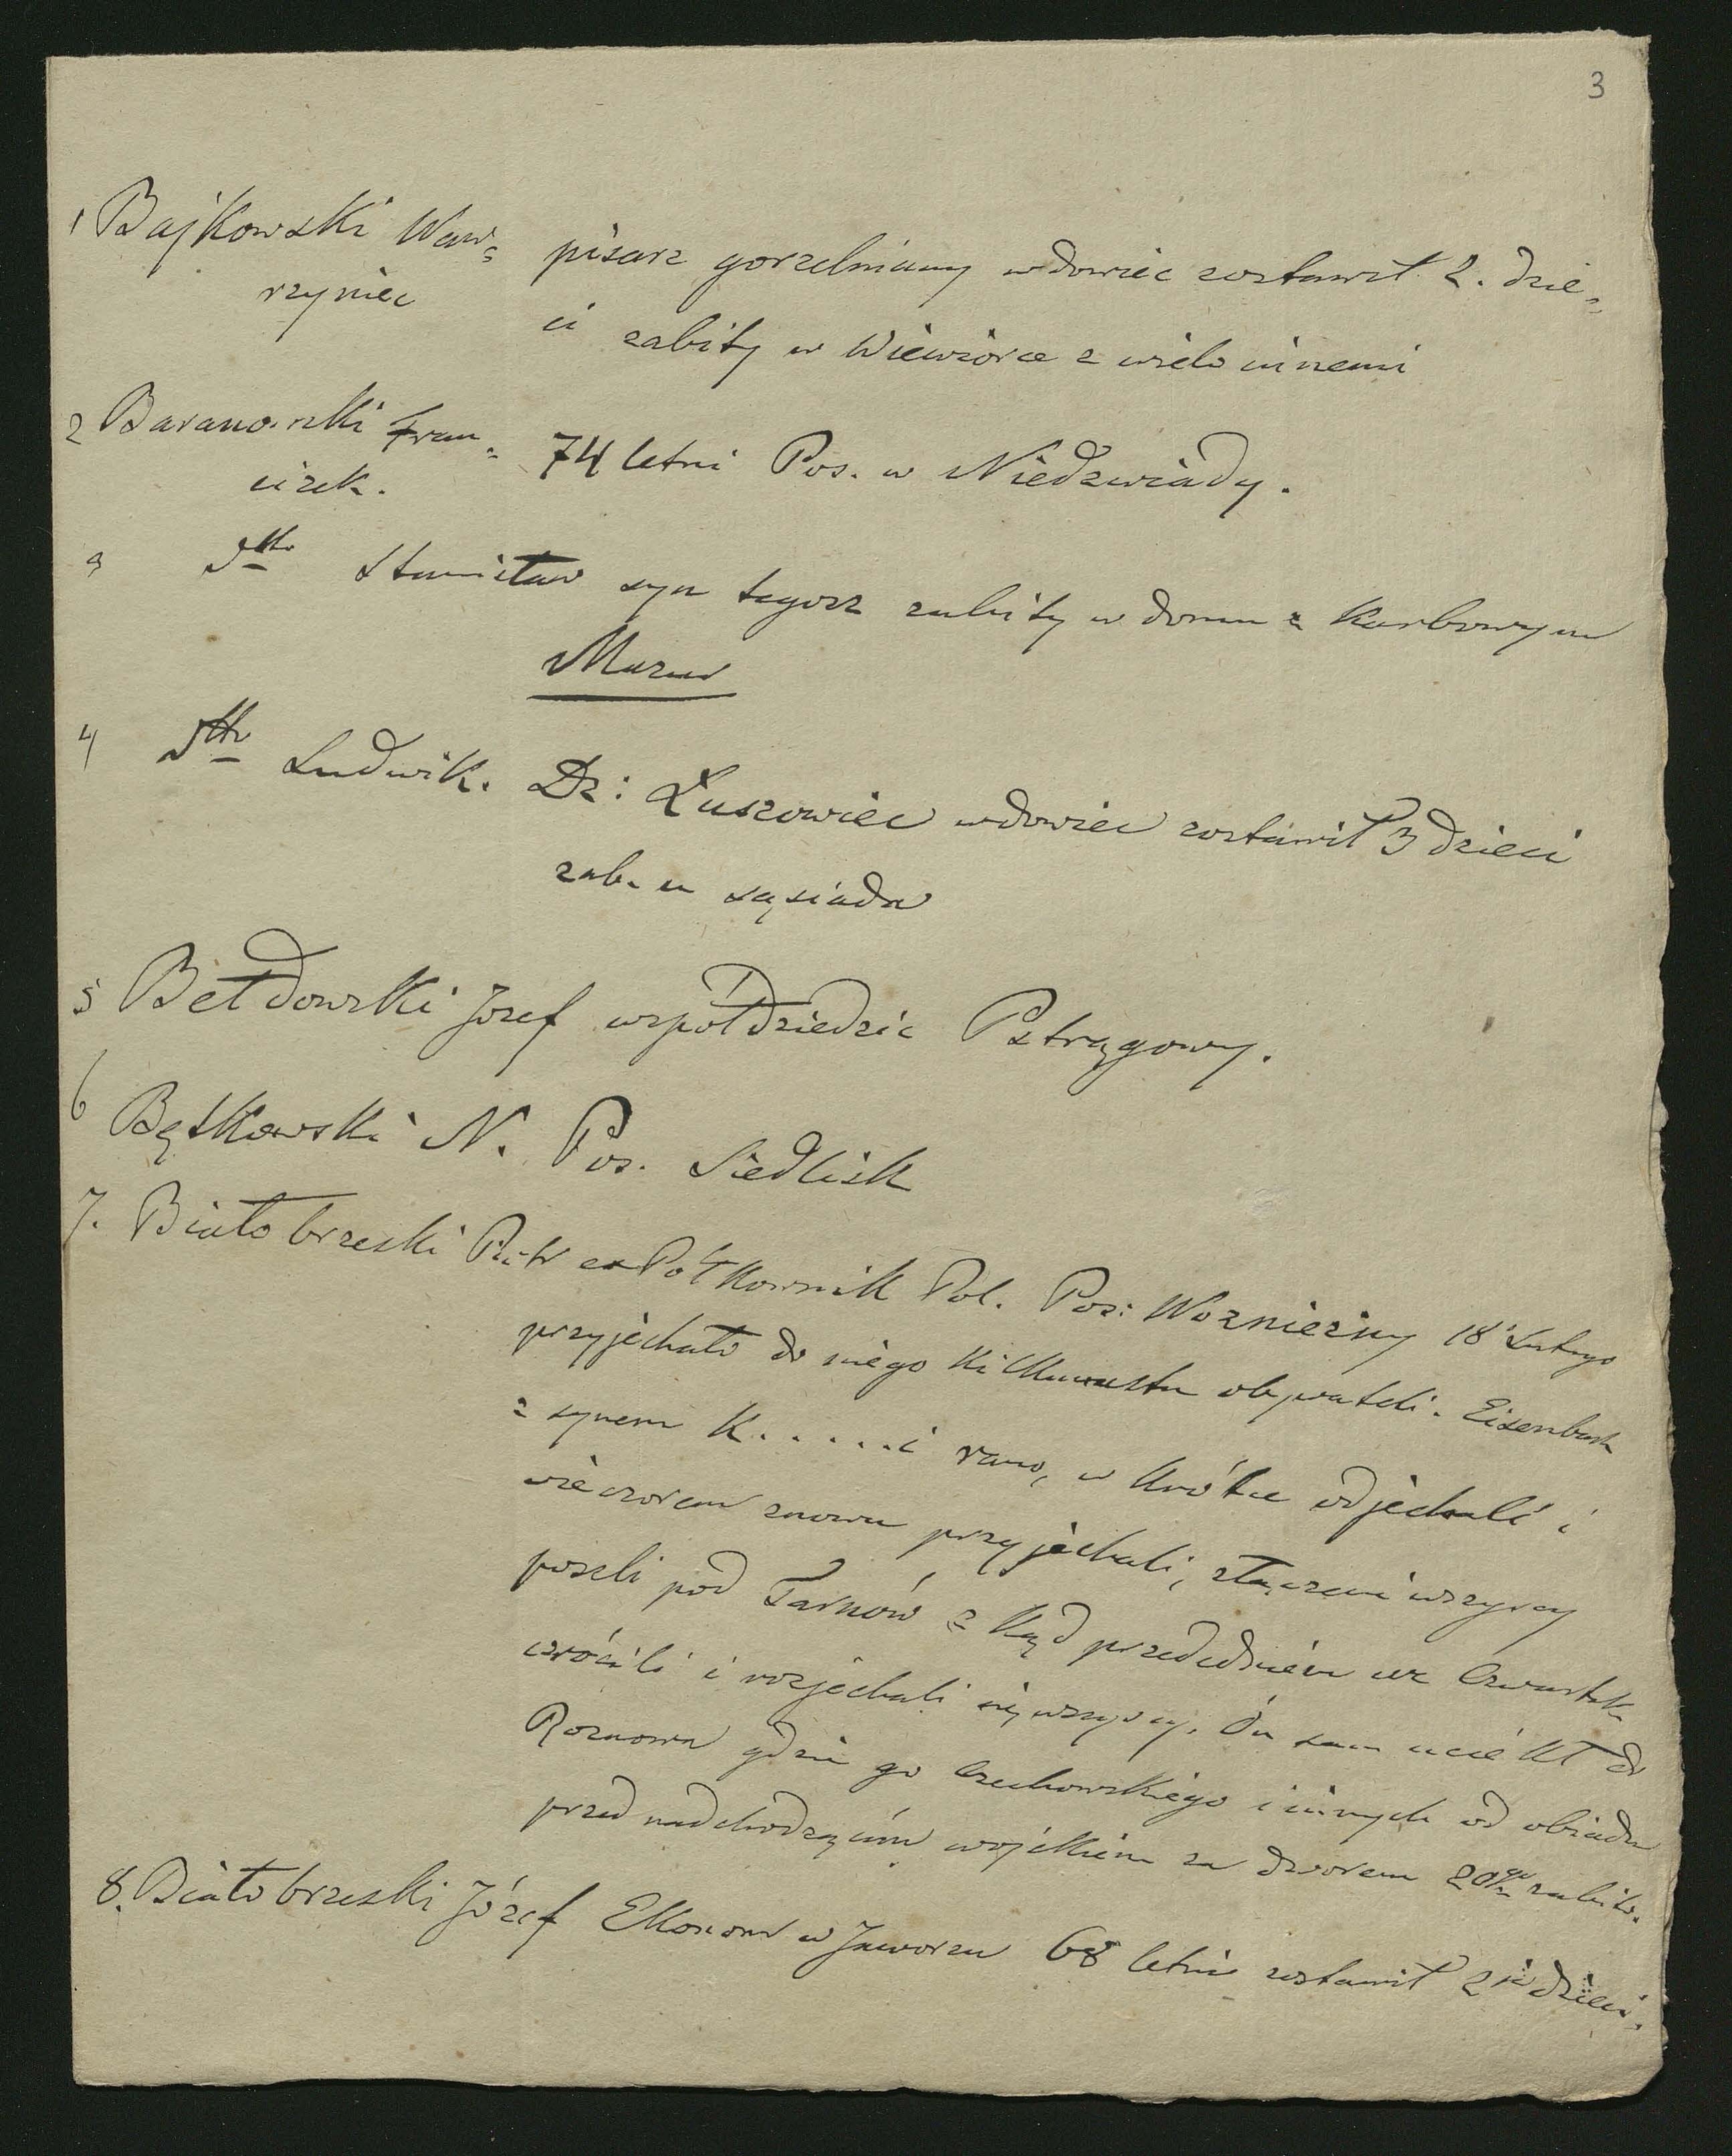 3
1 Bajkowski Waw= pisarz gorzelniany wdowiec zostawił 2. dzie=
rzyniec ci zabity w Wiewiórce z wielo innemi
2 Baranowski Fran= 74 letni Pos. w Niedzwiady.
ciszek.
3 dtto Stanisław syn tegosz zabity w domu z Karbowym
Mazur
4 dtto Ludwik. Dz: Łuszowiec wdowiec zostawił 3 dzieci
zab. u sąsiada
5 Bełdowski Jozef wspołdziedzic Pstrągowy.
6 Bętkowski N. Pos. Siedlisk
7. Białobrzeski Piotr ex Połkownik Pol. Pos: Wozniczny 18 Lutego
przyjechało do niego kilkunastu obywateli. Eisenbach
z synem K.....i rano, w krótce odjechali i
wieczorem znowu przyjechali, złączeni wszyscy
poszli pod Tarnów z kąd przededniem we Czwartek
wrócili i rozjechali się wszyscy. Ón sam uciekł do
Roznowa gdzie go Czechowskiego i innych od obiadu
przed nadchodzącém wojskiem za dworem 20go zabito.
8. Białobrzeski Józef Ekonom w Jaworzu 68 letni zostawił 2je dzieci.